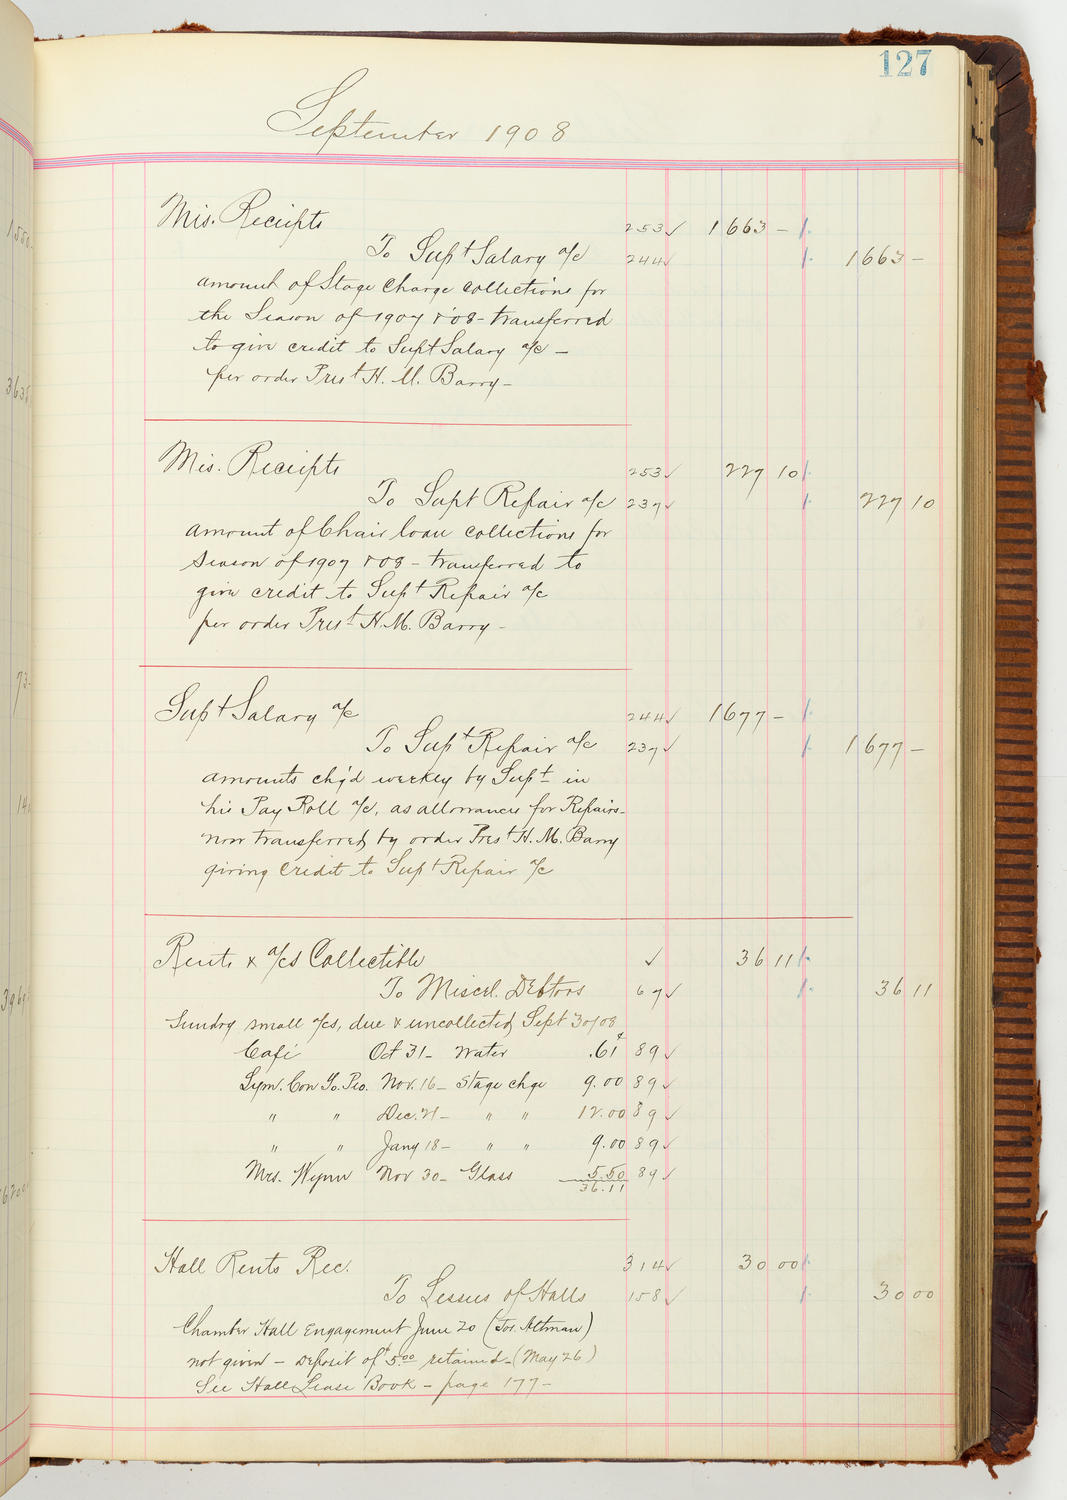 127
September 1908
Mis. Receipts 253 ✓ 1663 –
To Supt Salary a/c 244 ✓ 1663 –
amount of Stage Charge collections for
the Season of 1907 & '08 – transferred
to give credit to Supt Salary a/c –
per order Prest H. M. Barry –
Mis. Receipts 253 ✓ 227 10
To Supt Repair a/c 237 ✓ 227 10
amount of Chair loan collections for
Season of 1907 & 08 – transferred to
give credit to Supt Repair a/c
per order Prest H. M. Barry –
Supt Salary a/c 244 ✓ 1677 –
To Supt Repair a/c 237 ✓ 1677 –
amounts chg'd weekly by Supt in
his Pay Roll a/c, as allowances for Repairs –
now transferred by order Prest H. M. Barry
giving credit to Supt Repair a/c
Rents & a/cs Collectible ✓ 36 11
To Miscel. Debtors 67 ✓ 36 11
Sundry small a/cs, due & uncollected Sept 30/08
Café Oct 31 – Water .61¢ 89 ✓
Sym. Con Yo. Peo. Nov. 16 – Stage chge 9.00 89 ✓
" " Dec. 21 – " " 12.00 89 ✓
" " Jany 18 – " " 9.00 89 ✓
Mrs. Wynn Nov 30 – Glass 5.50 89 ✓
36.11
Hall Rents Rec. 314 ✓ 30 00
To Lessees of Halls 158 ✓ 30 00
Chamber Hall Engagement June 20 (Jos. Altman)
not given – Deposit of $5.00 retained – (May 26)
See Hall Lease Book – page 177 –